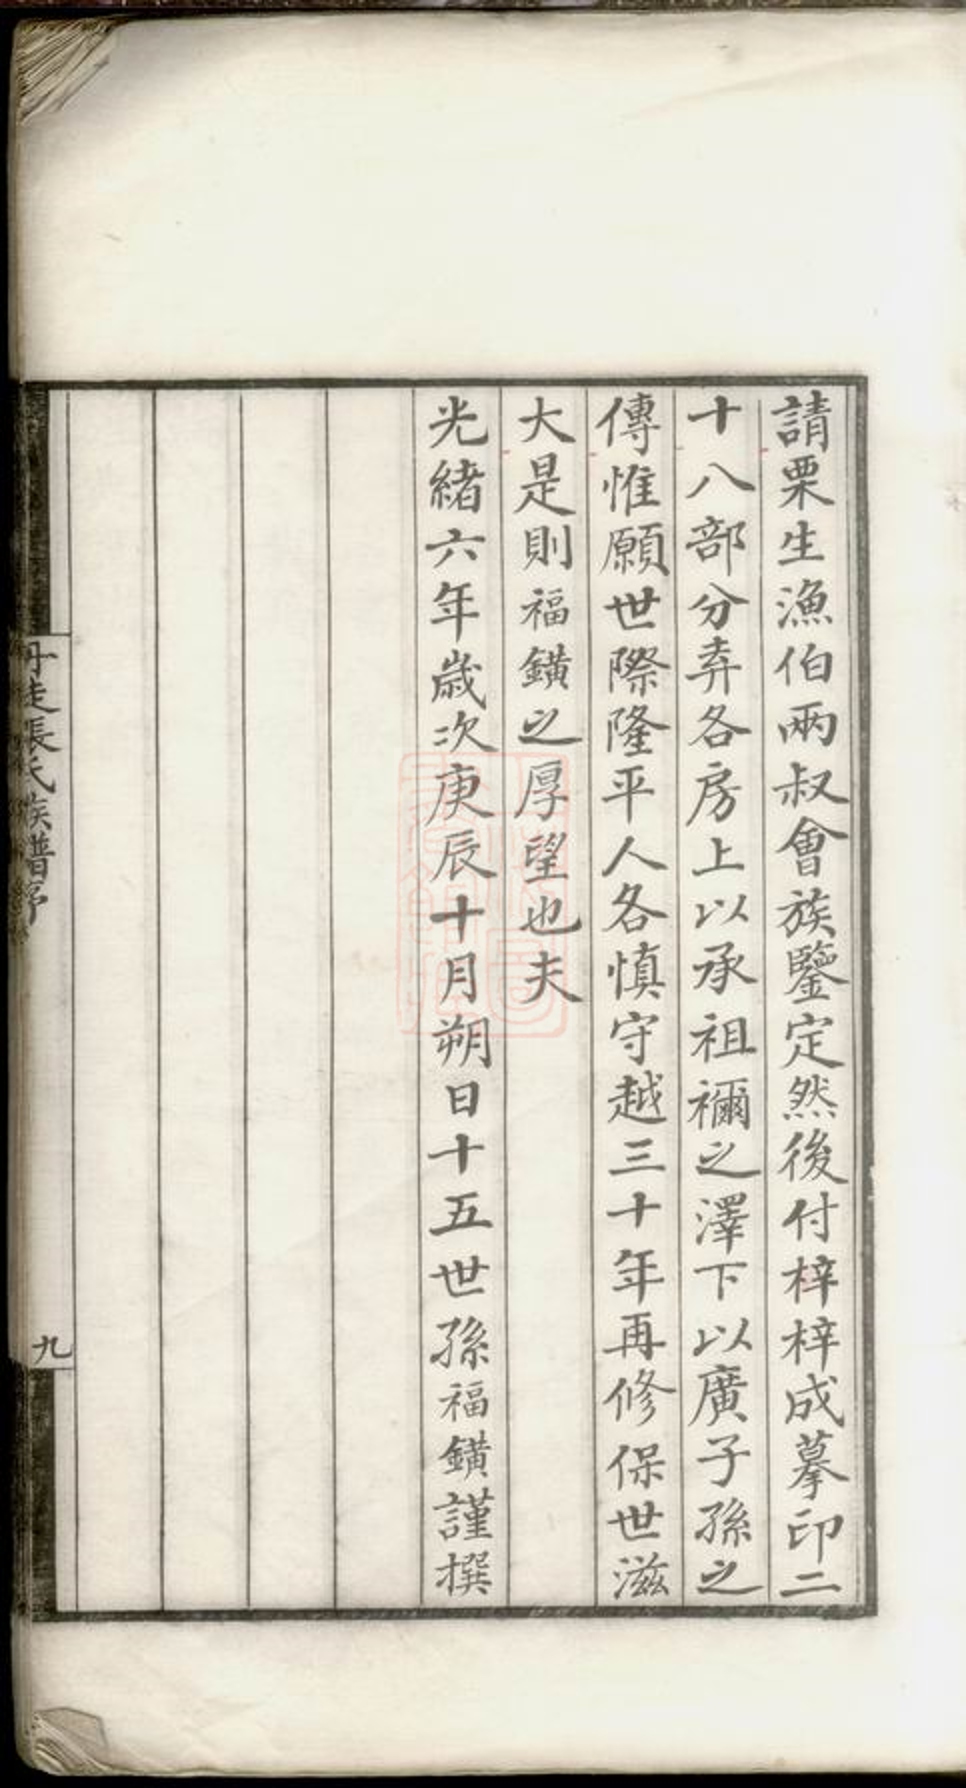 請栗生漁伯兩叔會族鑒定然後付梓梓成摹印二
十八部分弆各房上以承祖禰之澤下以廣子孫之
傳惟願世際隆平人各慎守越三十年再修保世滋
大是則福鐄之厚望也夫
光緒六年歲次庚辰十月朔日十五世孫福鐄謹撰
丹徒張氏族譜序
九